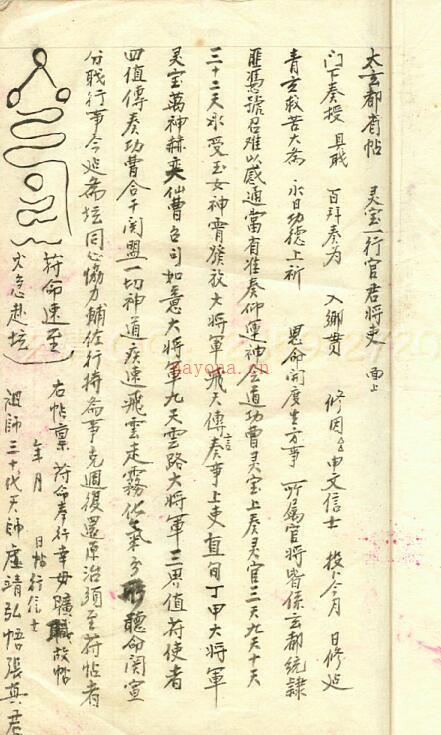 太玄都省帖 灵宝一行官君將吏 面上
门下奏授 具职 百拜奏为 入鄉贯 修因 申文信士 投 今月 日修延
青玄救苦大斋 永日功德上祈 恩命開度生方事 所属官將皆係玄都統隸
匪馮號召难以感通當有准奏仰運神会道功曹灵宝上奏灵官三天九天十天
三十二天水受玉女神霄發放大將軍飛天傳言奏事上吏直旬丁甲大將軍
灵宝萬神赫奕仙曹各司如意大將軍九天雲路大將軍三界值符使者
四值傳奏功曹合干関盟一切神道疾速飛雲走霧化氣分形聽命関宣
分职行事今延斋坛同心協力輔佐行持斋事克週復還原治須至符帖者
符命速至 右帖禀 符命奉行幸毋曠職故帖
火急赴坛 年月 日帖行信士
祖師三十代天師虛靖弘悟張真君